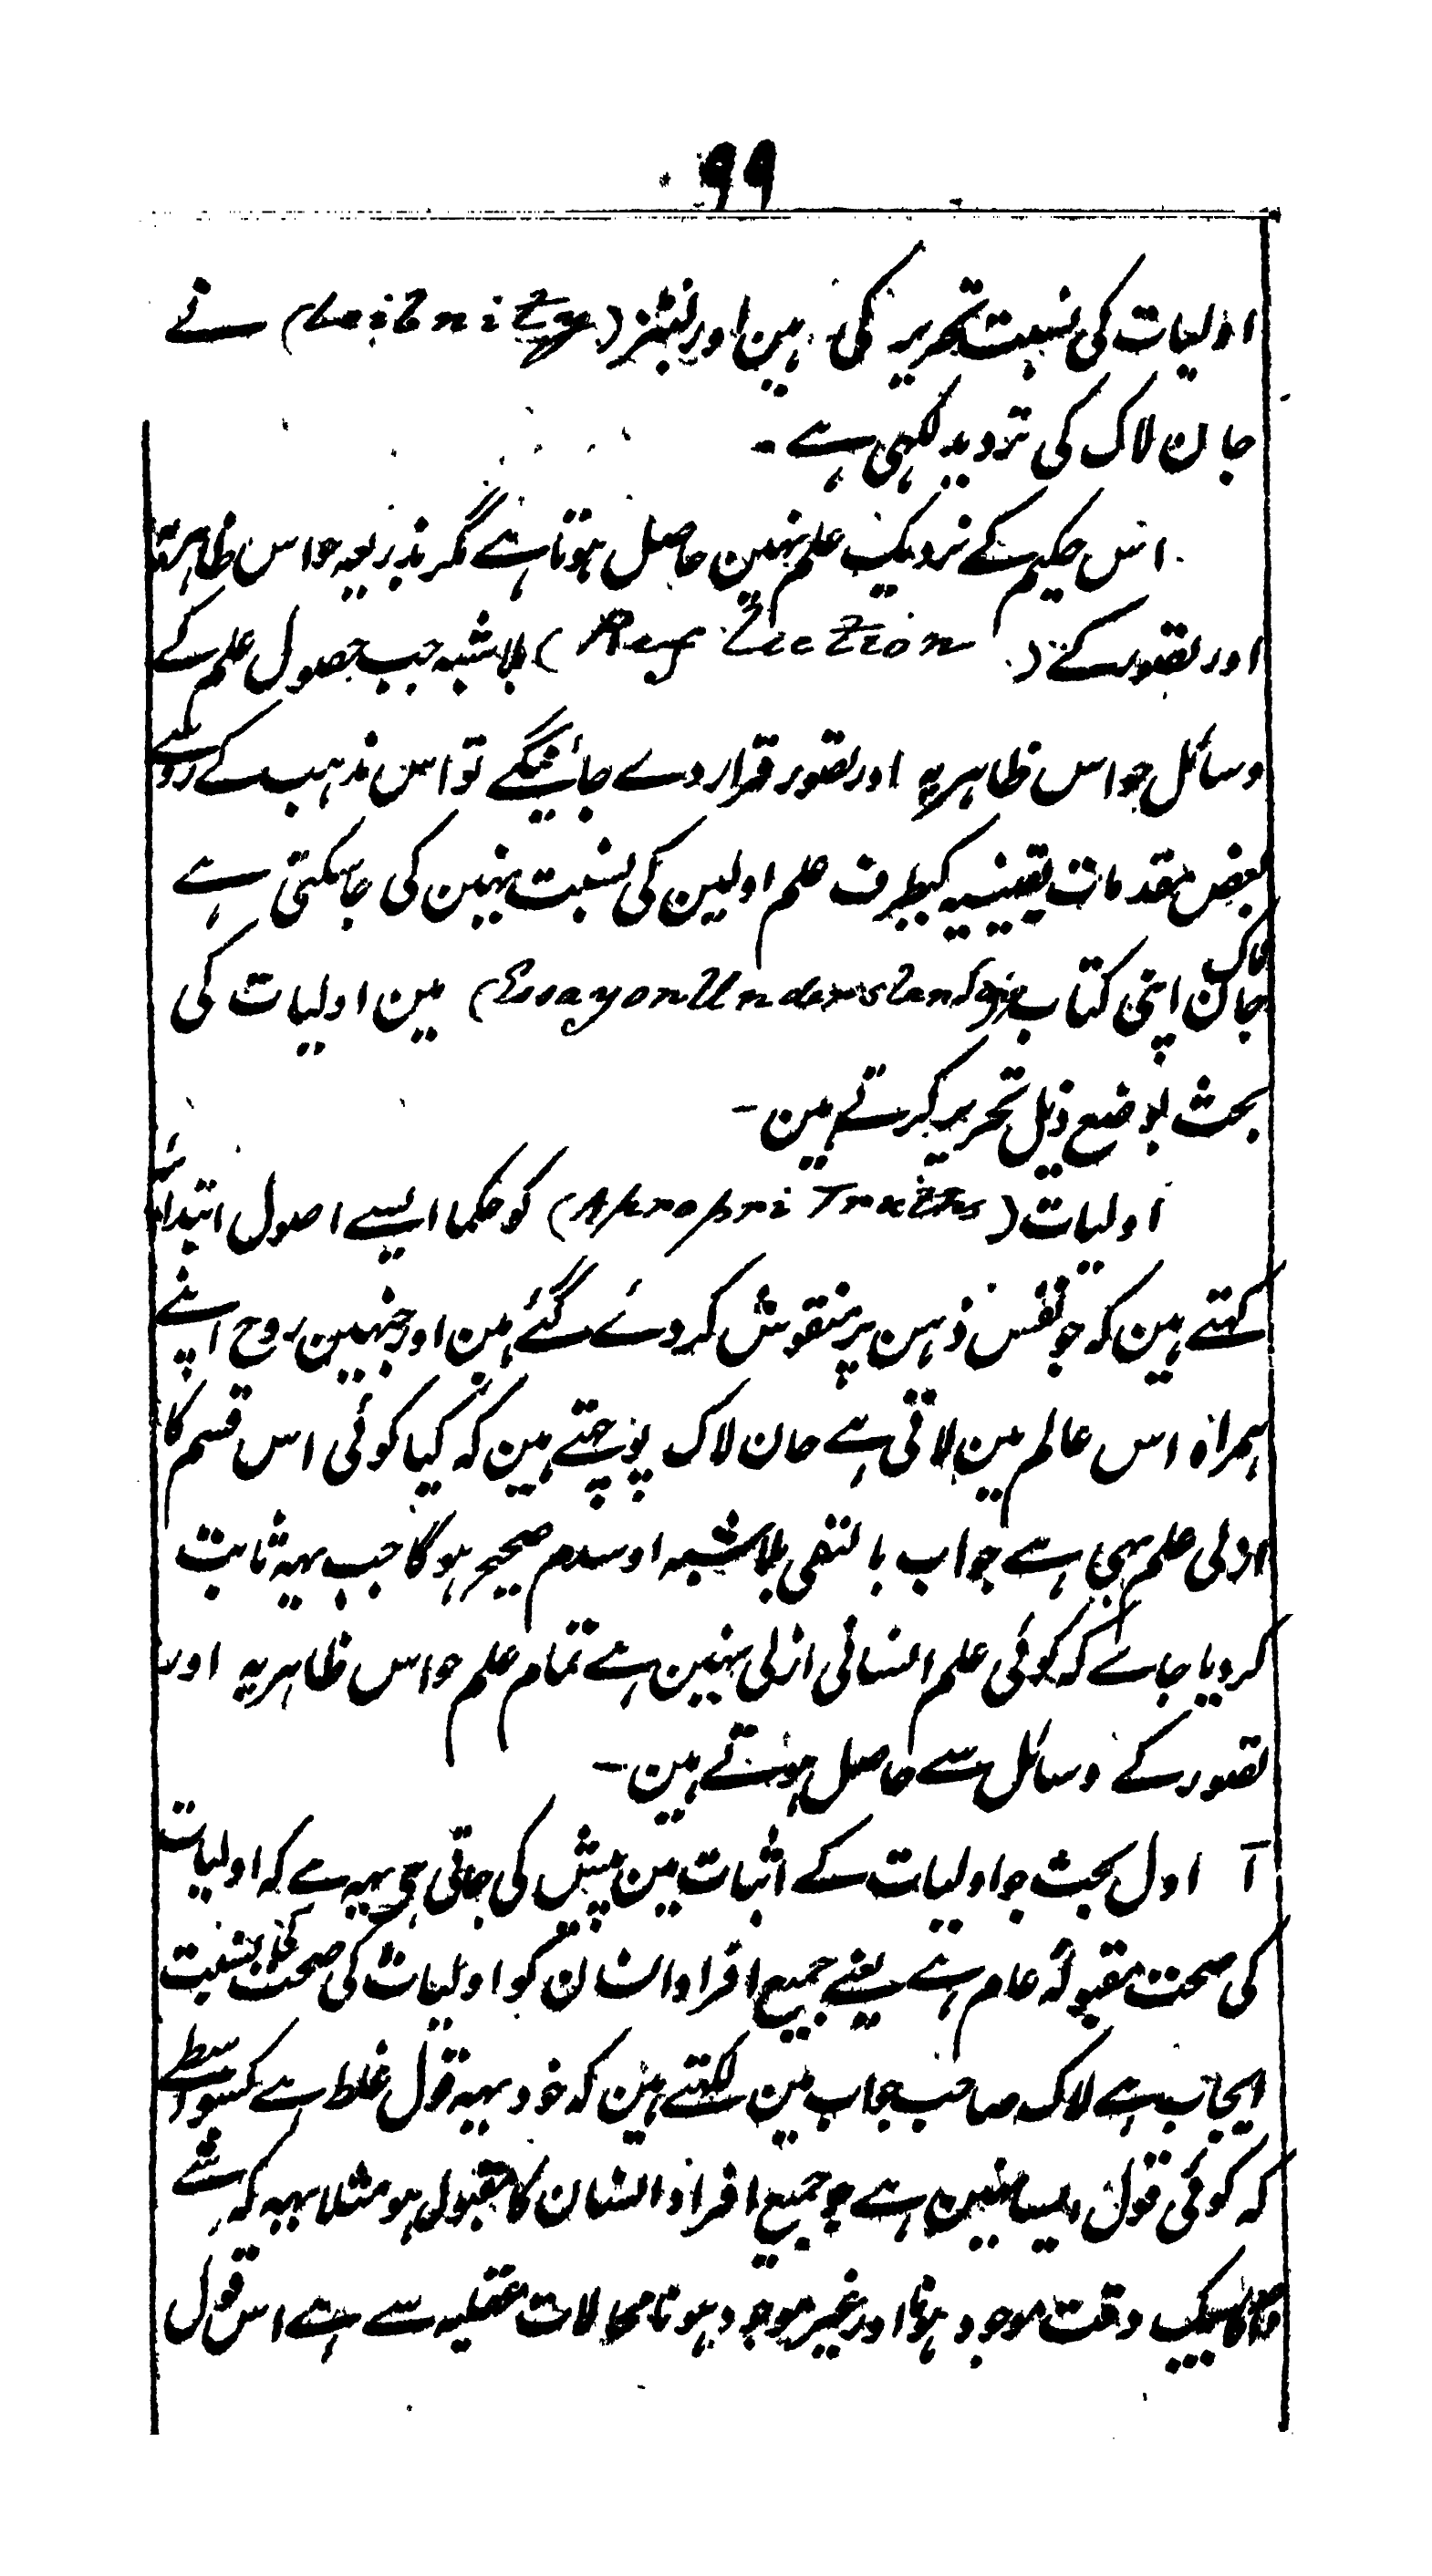 ۹۹
اولیات کی نسبت تحریر کی ہین اور لبنٹز (Leibnitz) نے
جان لاک کی تردید لکھی ہے ۔
اس حکیم کے نزدیک علم نہین حاصل ہوتا ہے مگر بذریعہ حواس ظاہریہ
اور تصور کے (Reflection) بلا شبہ جب حصول علم کے
وسائل حواس ظاہریہ اور تصور قرار دے جائینگے تو اس مذہب کے روسے
بعض مقدمات یقینیہ کیطرف علم اولین کی نسبت نہین کی جا سکتی ہے
جان لاک اپنی کتاب (Essay on Understanding) مین اولیات کی
بحث بوضع ذیل تحریر کرتے ہین ۔
اولیات (Apropri Truths) کو حکما ایسے اصول ابتدائیہ
کہتے ہین کہ جو نفس ذہن پر منقوش کر دئے گئے ہین اور جنہین روح اپنے
ہمراہ اس عالم مین لاتی ہے جان لاک پوچھتے ہین کہ کیا کوئی اس قسم کا
ازلی علم بھی ہے جواب بالنفی بلا شبہ اوسدم صحیح ہوگا جب یہہ ثابت
کر دیا جاے کہ کوئی علم انسانی ازلی نہین ہے تمام علم حواس ظاہریہ اور
تصور کے وسائل سے حاصل ہوتے ہین ۔
آ اول بحث جو اولیات کے اثبات مین پیش کی جاتی ہی یہہ ہے کہ اولیات
کی صحت مقبولہ عام ہے یعنے جمیع افراد انسان کو اولیات کی صحت کی نسبت
ایجاب ہے لاک صاحب جواب مین لکھتے ہین کہ خود یہہ قول غلط ہے کسواسطے
کہ کوئی قول ایسا نہین ہے جو جمیع افراد انسان کا مقبول ہو مثلا یہہ کہ شے
واحد کا یک وقت موجود ہونا اور غیر موجود ہونا محالات عقلیہ سے ہے اس قول